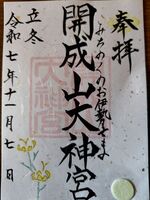 奉拝
みちのくのお伊勢さま
開成山大神宮
立冬
令和七年十一月七日